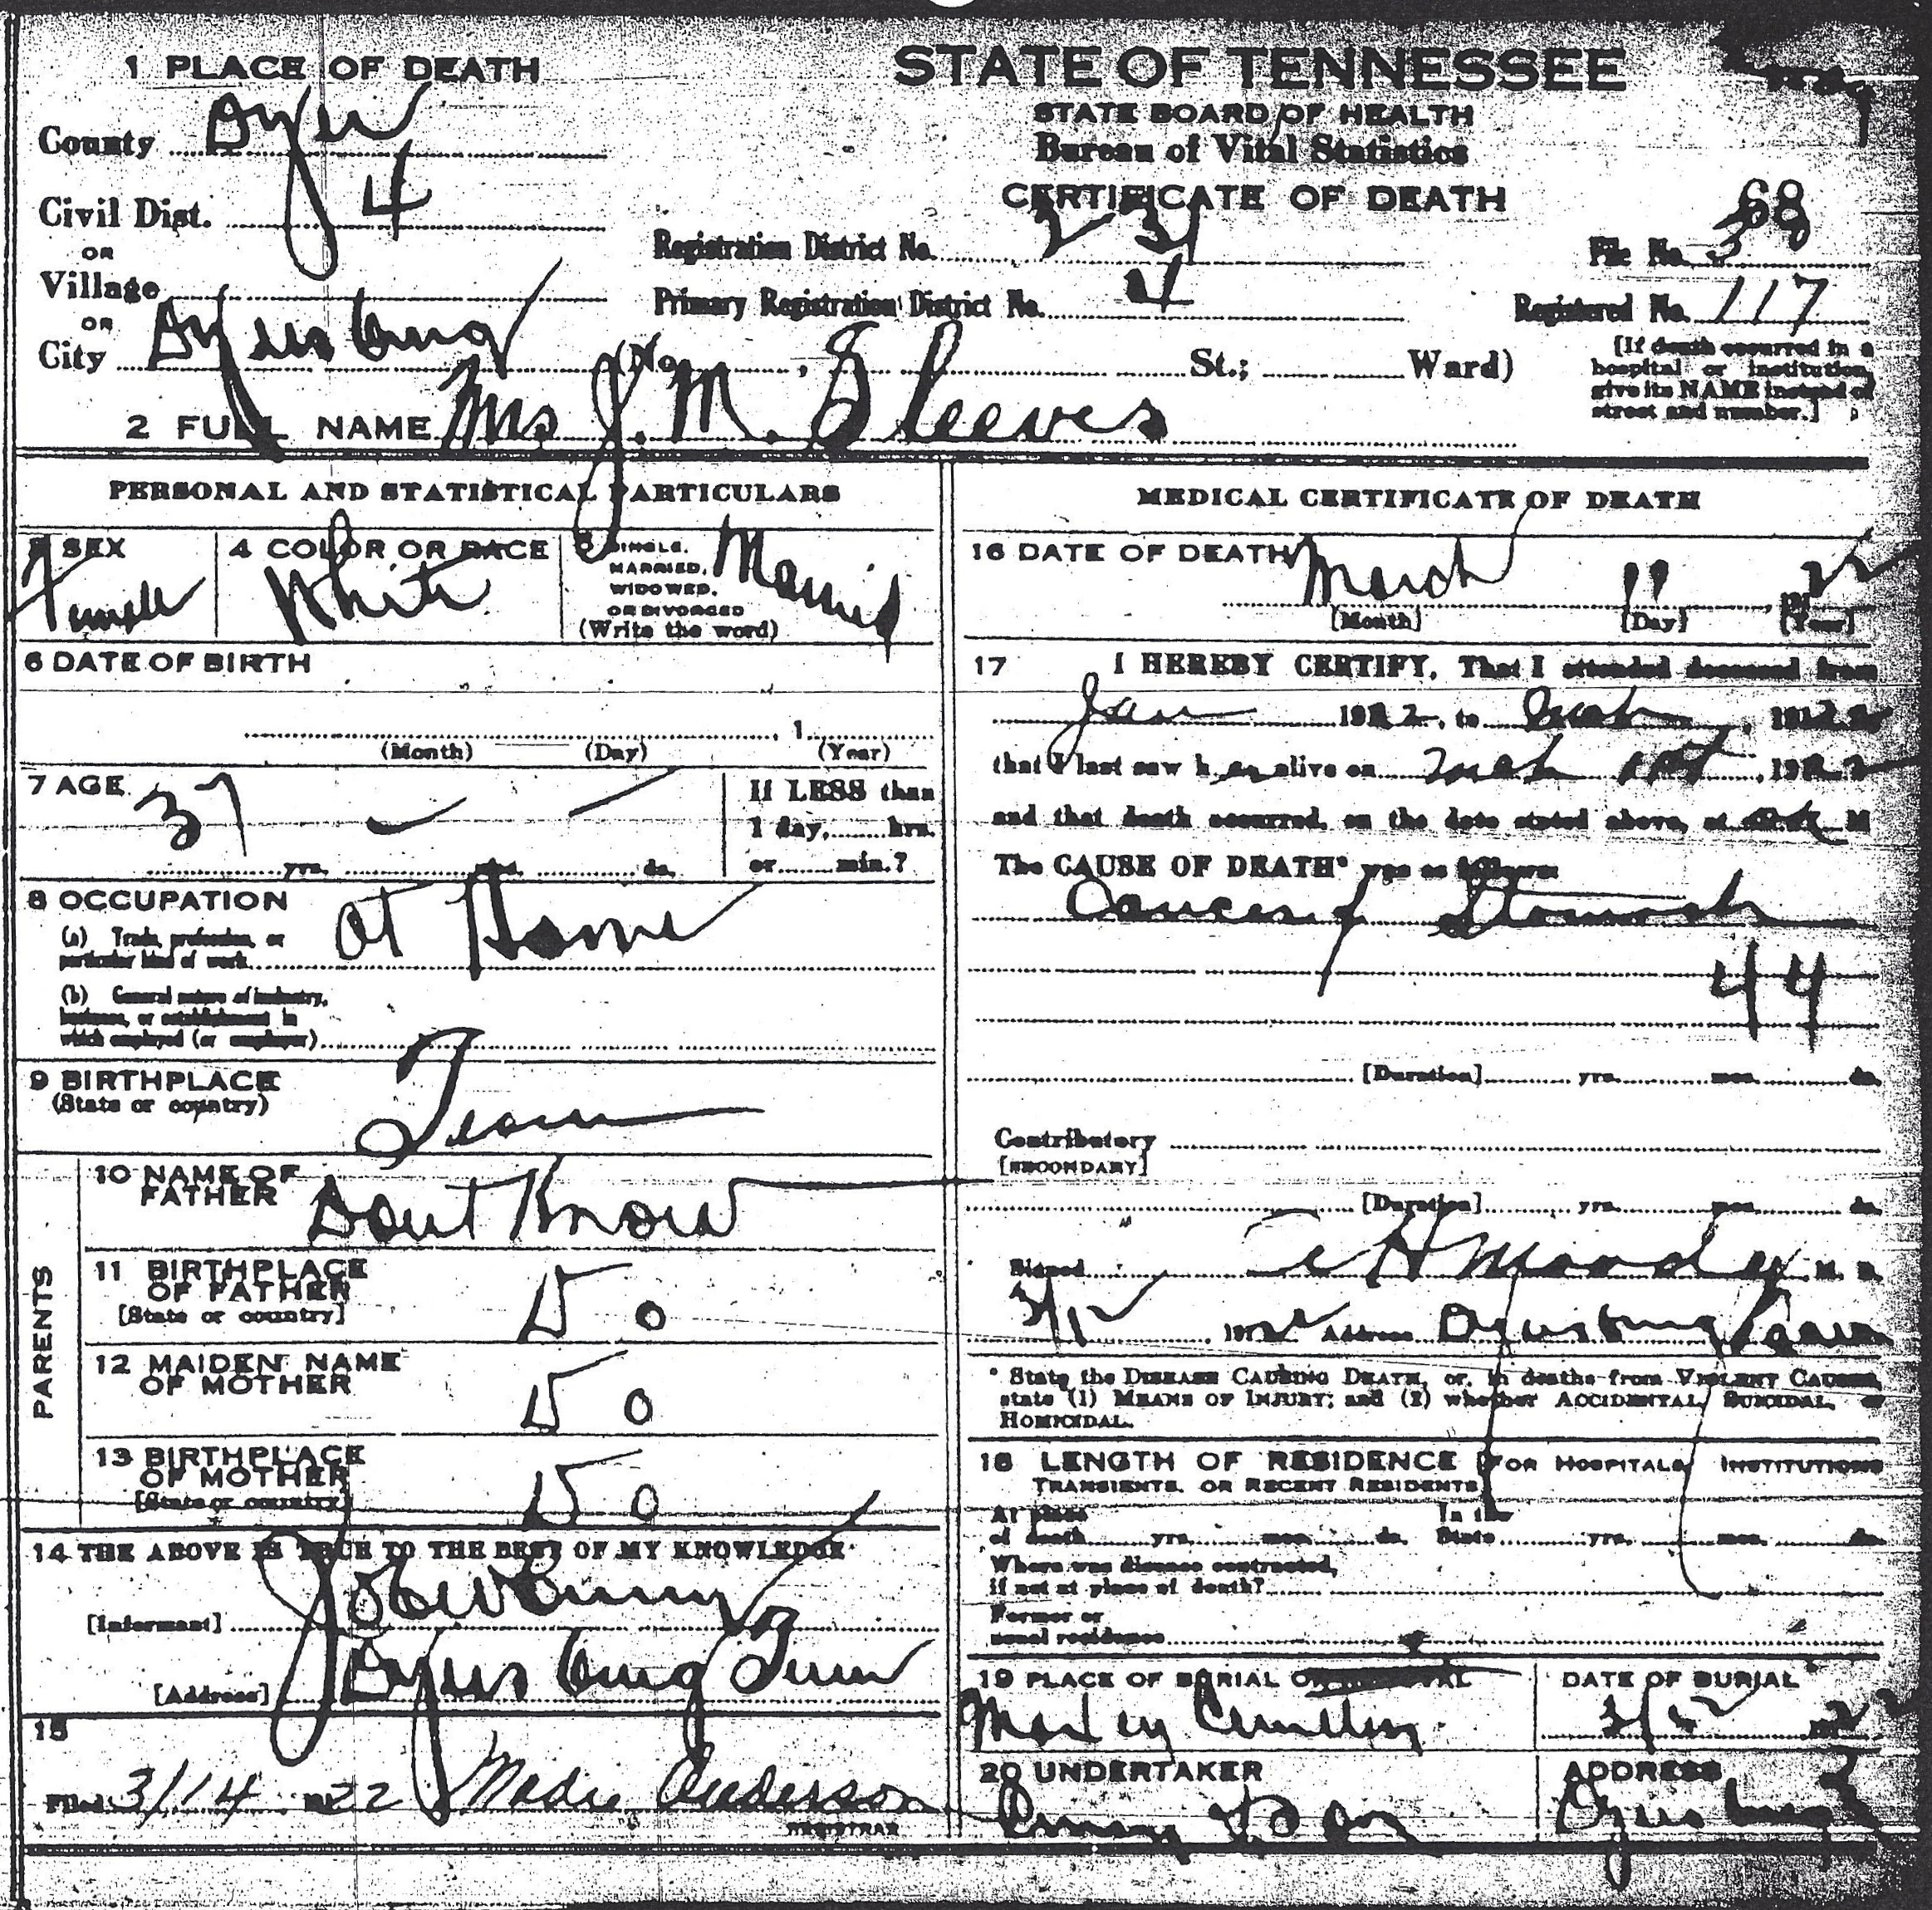 1 PLACE OF DEATH
County Dyer
Civil Dist. 4
OR
Village
OR
City Dyersburg (No. , St.; Ward)
STATE OF TENNESSEE
STATE BOARD OF HEALTH
Bureau of Vital Statistics
CERTIFICATE OF DEATH
Registration District No. 231
File No. 68
Primary Registration District No. 4
Registered No. 117
[If death occurred in a
hospital or institution,
give its NAME instead of
street and number.]
2 FULL NAME Mrs J. M. Sleeves
PERSONAL AND STATISTICAL PARTICULARS
3 SEX
Female
4 COLOR OR RACE
White
5 SINGLE,
MARRIED,
WIDOWED,
OR DIVORCED
(Write the word)
Married
6 DATE OF BIRTH
, 1
(Month) (Day) (Year)
7 AGE
37
yrs. mos. ds.
If LESS than
1 day, hrs.
or min.?
8 OCCUPATION
(a) Trade, profession, or
particular kind of work
At Home
(b) General nature of industry,
business, or establishment in
which employed (or employer)
9 BIRTHPLACE
(State or country)
Tenn
PARENTS
10 NAME OF
FATHER
Dont Know
11 BIRTHPLACE
OF FATHER
[State or country]
D o
12 MAIDEN NAME
OF MOTHER
D o
13 BIRTHPLACE
OF MOTHER
[State or country]
D o
14 THE ABOVE IS TRUE TO THE BEST OF MY KNOWLEDGE
[Informant]
[Address] Dyersburg Tenn
15
Filed 3/14 1922 Madie Anderson
REGISTRAR
MEDICAL CERTIFICATE OF DEATH
16 DATE OF DEATH
March 11, 1922
[Month] [Day] [Year]
17 I HEREBY CERTIFY, That I attended deceased from
Jan 1922, to Mch , 1922
that I last saw her alive on Mch 1st , 1922
and that death occurred, on the date stated above, at M
The CAUSE OF DEATH* was as follows:
Cancer of Stomach
44
[Duration] yrs. mos. ds.
Contributory
[SECONDARY]
[Duration] yrs. mos. ds.
Signed H Moody M. D.
3/12, 1922 Address Dyersburg Tenn
* State the DISEASE CAUSING DEATH, or, in deaths from VIOLENT CAUSES,
state (1) MEANS OF INJURY; and (2) whether ACCIDENTAL, SUICIDAL, or
HOMICIDAL.
18 LENGTH OF RESIDENCE [FOR HOSPITALS, INSTITUTIONS
TRANSIENTS, OR RECENT RESIDENTS]
At place
of death yrs. mos. ds.
In the
State yrs. mos. ds.
Where was disease contracted,
if not at place of death?
Former or
usual residence
19 PLACE OF BURIAL OR REMOVAL
Maxey Cemetery
DATE OF BURIAL
3/12 1922
20 UNDERTAKER
ADDRESS
Dyersburg